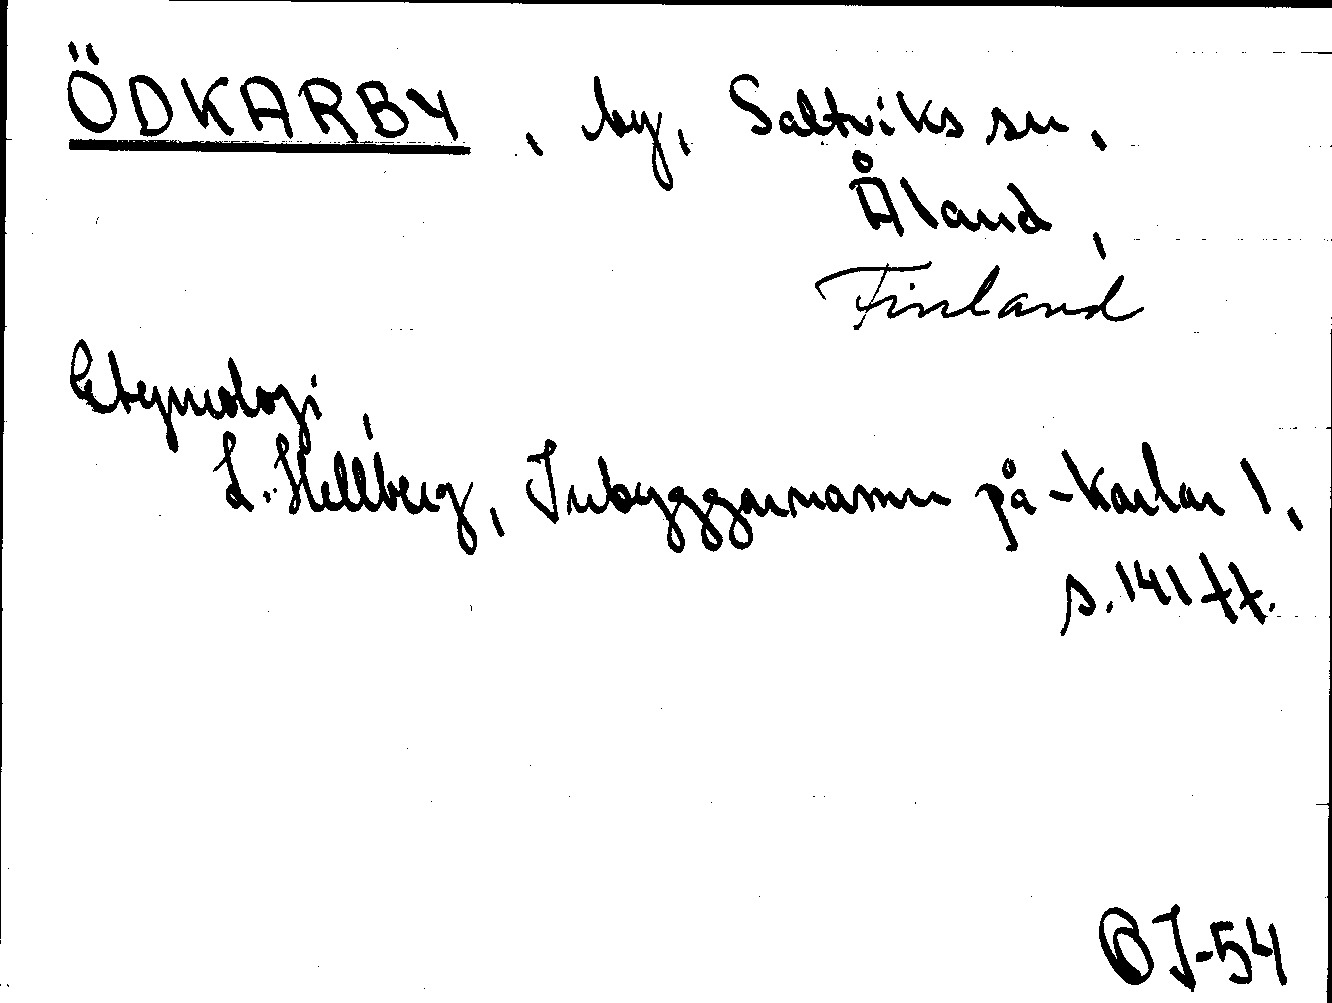 ÖDKARBY, by, Saltviks sn,
Åland,
Finland
Etymologi,
L. Hellberg, Inbyggarnamn på -karlar 1,
s. 141 ff.
BJ-54